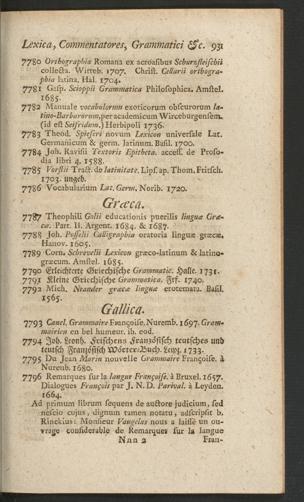 Lexica, Commentatores, Grammatici &c. 931
7780 Orthographia Romana ex acroasibus Schurzfleischii
collecta. Witteb. 1707. Christ. Cellarii orthogra-
phia latina. Hal. 1704.
7781 Gasp. Scioppii Grammatica Philosophica. Amstel.
1685.
7782 Manuale vocabulorum exoticorum obscurorum la-
tino-Barbarorum, per academicum Wirceburgensem.
(id est Seifridum.) Herbipoli 1736.
7783 Theod. Spieseri novum Lexicon universale Lat.
Germanicum & germ. latinum. Basil. 1700.
7784 Joh. Ravisii Textoris Epitheta. access. de Proso-
dia libri 4. 1588.
7785 Vorstii Tract. de latinitate. Lips. ap. Thom. Fritsch.
1703. ungeb.
7786 Vocabularium Lat. Germ. Norib. 1720.
Græca.
7787 Theophili Golii educationis puerilis linguæ Græ-
cæ. Part. II. Argent. 1684. & 1687.
7788 Joh. Posselii Calligraphia oratoria linguæ græcæ.
Hanov. 1605.
7789 Corn. Schrevelii Lexicon græco-latinum & latino-
græcum. Amstel. 1685.
7790 Erleichterte Griechische Grammatic. Halle. 1731.
7791 Kleine Griechische Grammatica. Frf. 1740.
7792 Mich. Neander græcæ linguæ erotemata. Basil.
1565.
Gallica.
7793 Canel, Grammaire Françoise. Nuremb. 1697. Gram-
mairien en bel humeur. ib. eod.
7794 Joh. Leonh. Frischens Französisch teutsches und
teutsch Französisch Wörter-Buch. Leipz. 1733.
7795 Du Jean Marin nouvelle Grammaire Françoise. à
Nuremb. 1680.
7796 Remarques sur la langue Françoise. à Bruxel. 1657.
Dialogues François par J. N. D. Parival. à Leyden.
1664.
Ad primum librum sequens de auctore judicium, sed
nescio cujus, dignum tamen notatu, adscripsit b.
Rinckius: Monsieur Vaugelas nous a laissé un ou-
vrage considerable de Remarques sur la langue
Nnn 2 Fran-